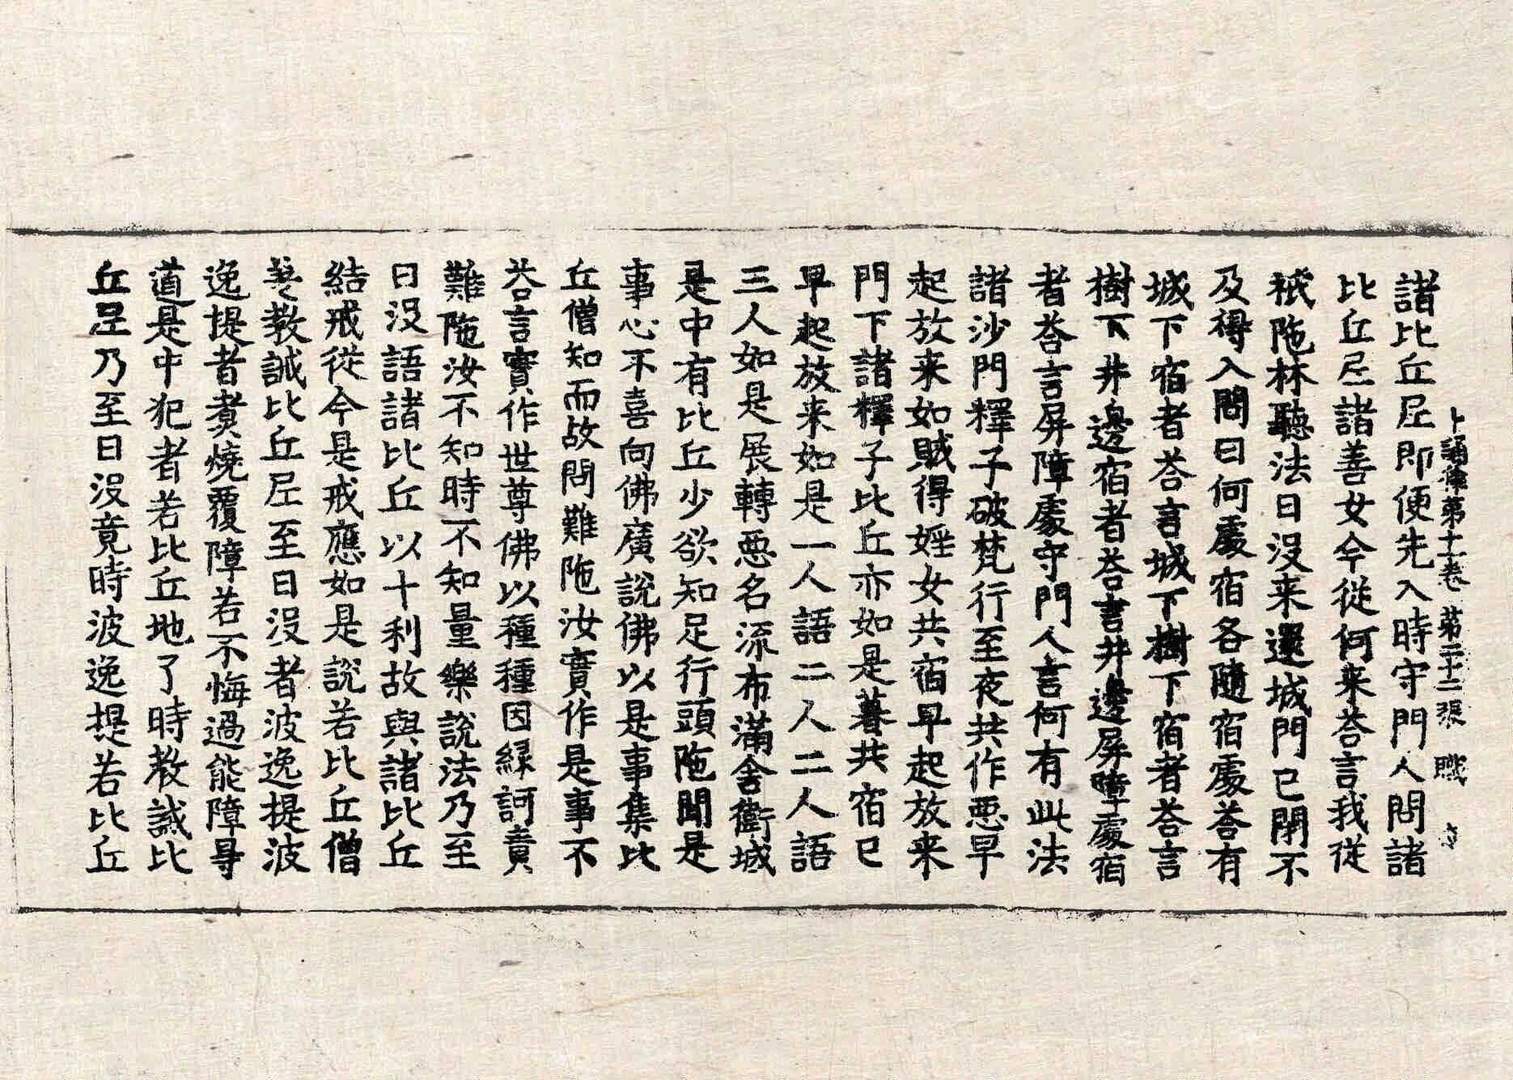 諸比丘尼即便先入時守門人問諸
十誦律第十一卷 第二十二張 職
比丘尼諸善女今從何来荅言我從
祇陁林聽法日没来還城門已閉不
及得入問曰何處宿各隨宿處荅有
城下宿者荅言城下樹下宿者荅言
樹下井邊宿者荅言井邊屏障處宿
者荅言屏障處守門人言何有此法
諸沙門釋子破梵行至夜共作惡早
起放来如賊得婬女共宿早起放来
門下諸釋子比丘亦如是暮共宿已
早起放来如是一人語二人二人語
三人如是展轉惡名流布滿舍衛城
是中有比丘少欲知足行頭陁聞是
事心不喜向佛廣說佛以是事集比
丘僧知而故問難陁汝實作是事不
荅言實作世尊佛以種種因緣訶責
難陁汝不知時不知量樂說法乃至
日没語諸比丘以十利故與諸比丘
結戒從今是戒應如是說若比丘僧
差教誡比丘尼至日没者波逸提波
逸提者煑燒覆障若不悔過能障㝵
道是中犯者若比丘地了時教誡比
丘尼乃至日没竟時波逸提若比丘